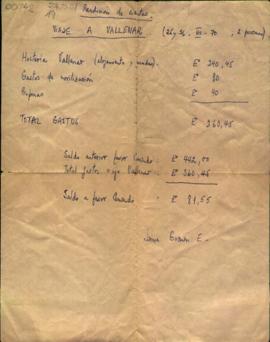 Rendición de Gastos
VIAJE A VALLENAR (25 y 26 - III - 70, 2 personas)
Hostería Vallenar (alojamiento y comidas) Eº 240,45
Gastos de movilización Eº 80
Propinas Eº 40
TOTAL GASTOS Eº 360,45
Saldo anterior favor Eº 442,00
Total gastos viaje Vallenar Eº 360,45
Saldo a favor Eº 81,55
E.